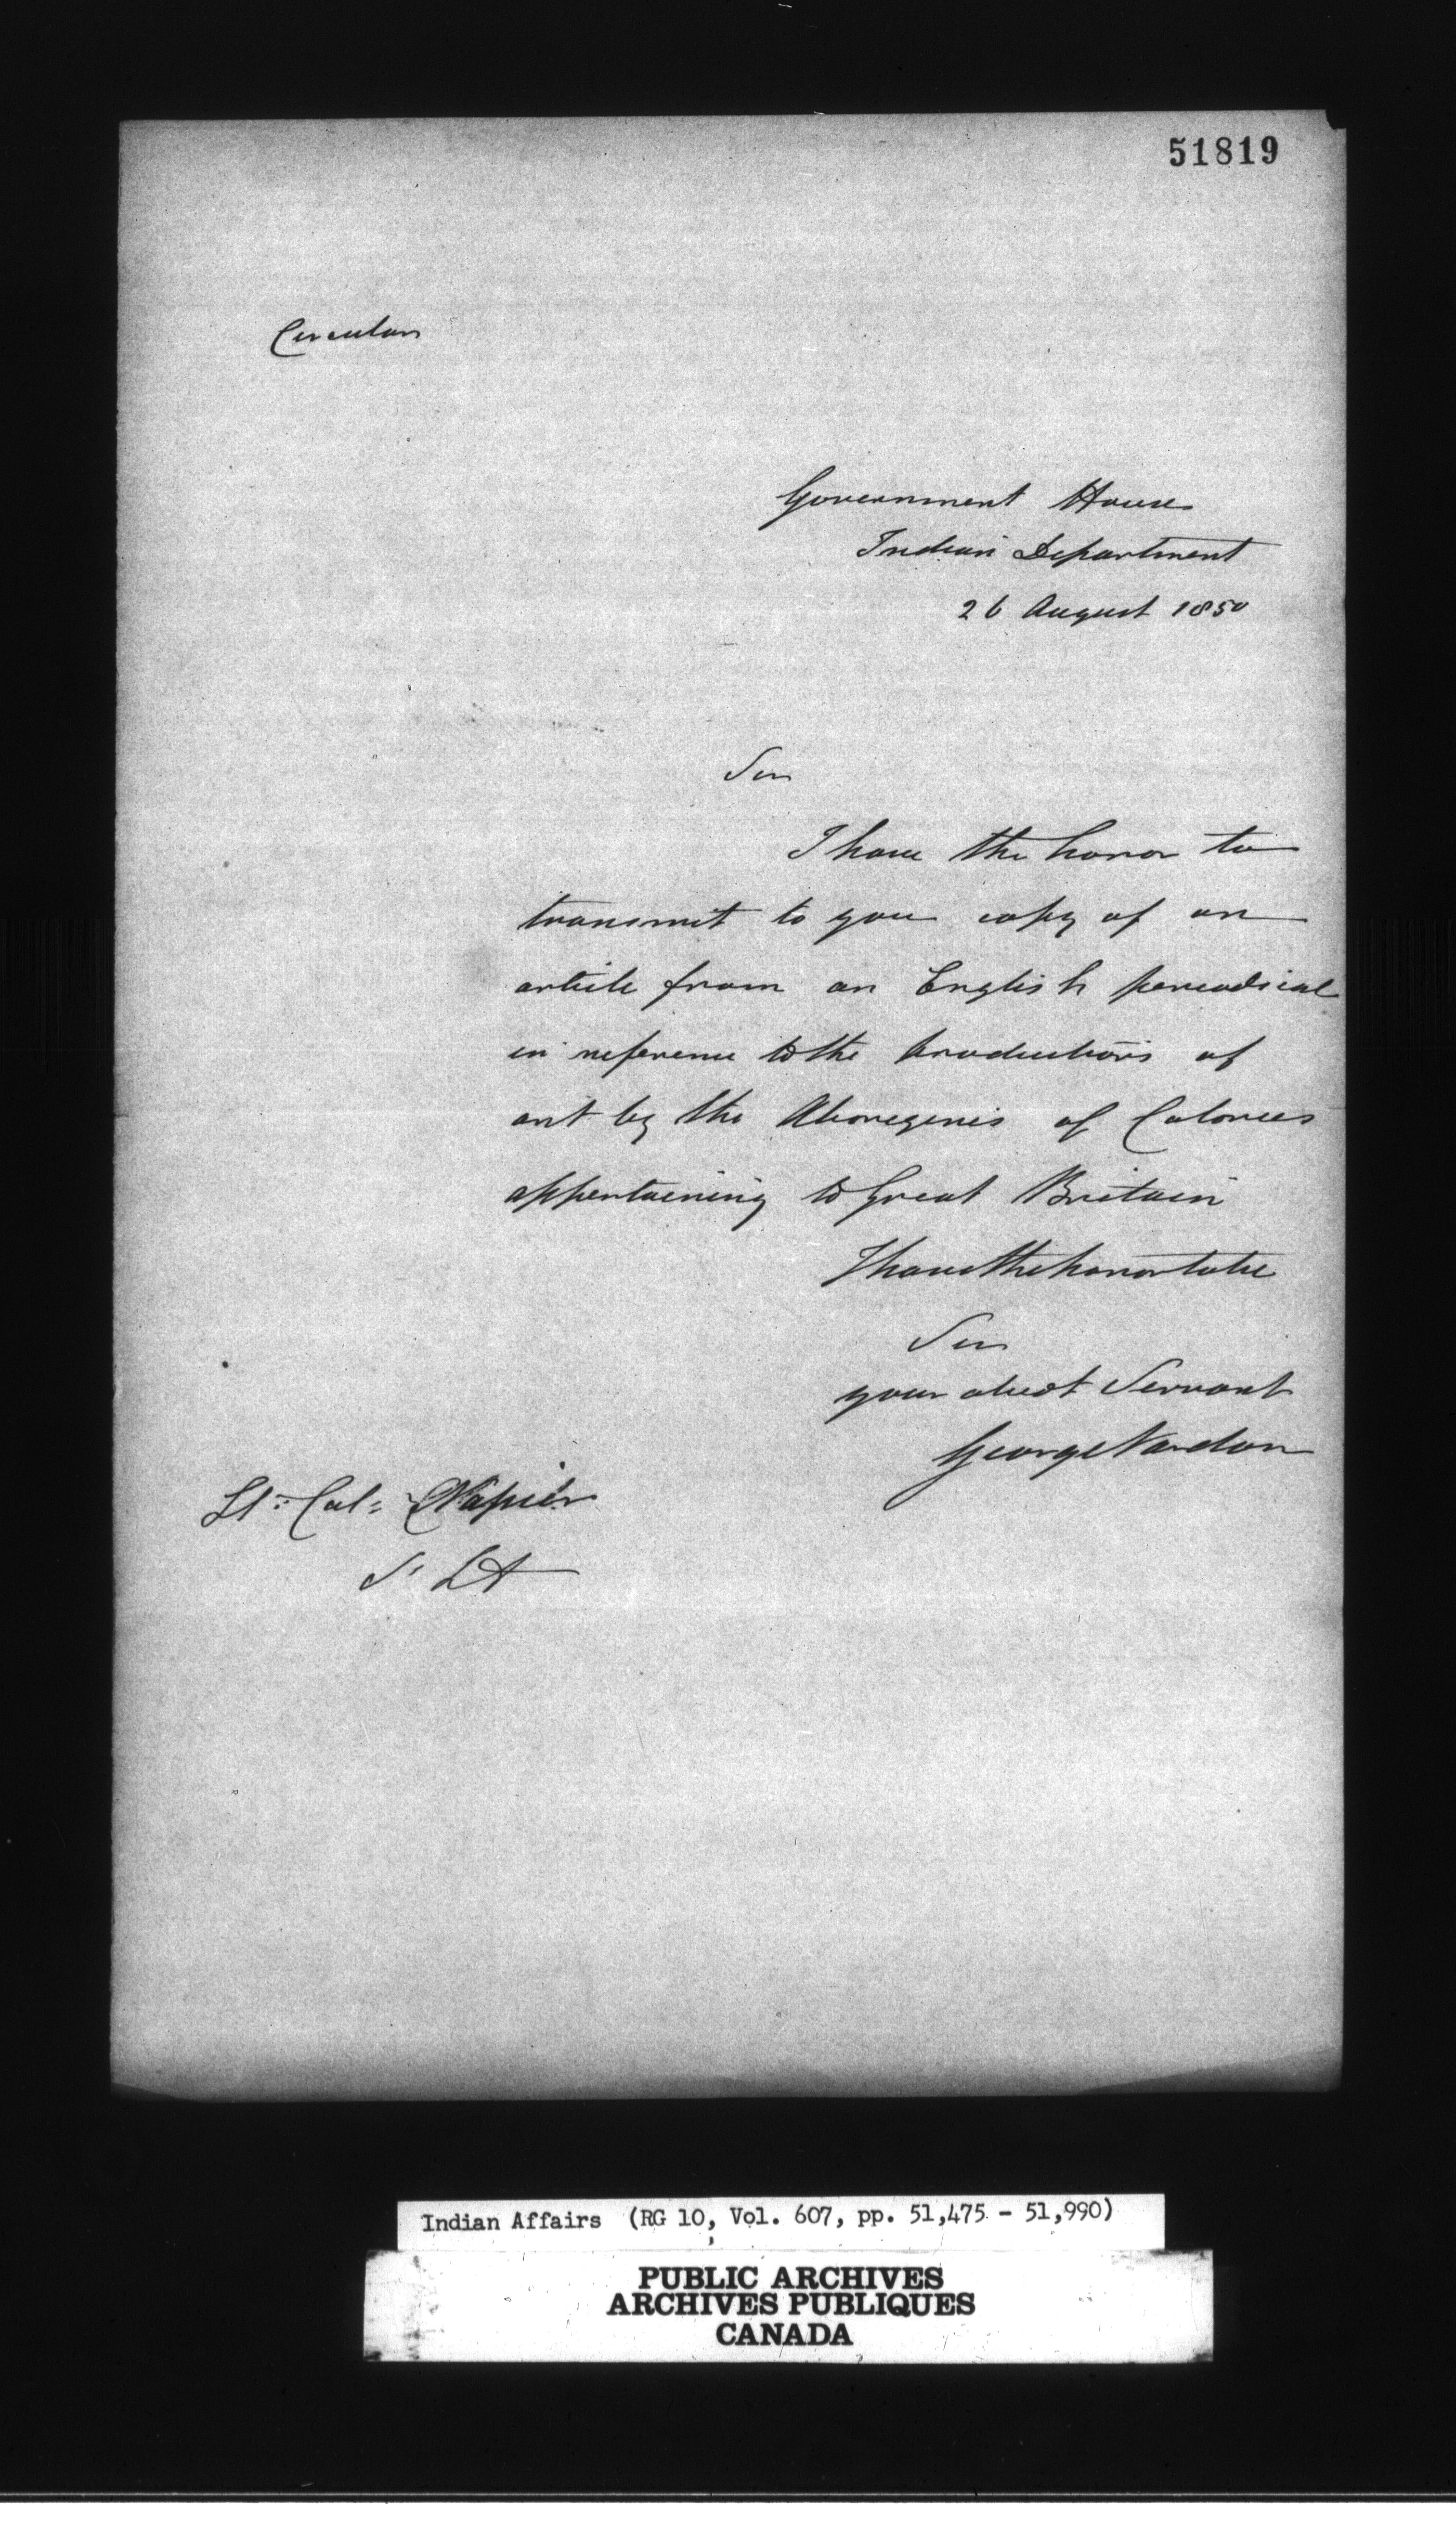 51819
Circular
Government House
Indian Department
26 August 1850
Sir
I have the honor to
transmit to you copy of an
article from an English periodical
in reference to the productions of
art by the Aborigenis of Colonies
appertaining to Great Britain
I have the honor to be
Sir
your obedt Servant
George Vardon
Lt: Col: Napier
S. I. A
Indian Affairs (RG 10, Vol. 607, pp. 51,475 - 51,990)
PUBLIC ARCHIVES
ARCHIVES PUBLIQUES
CANADA